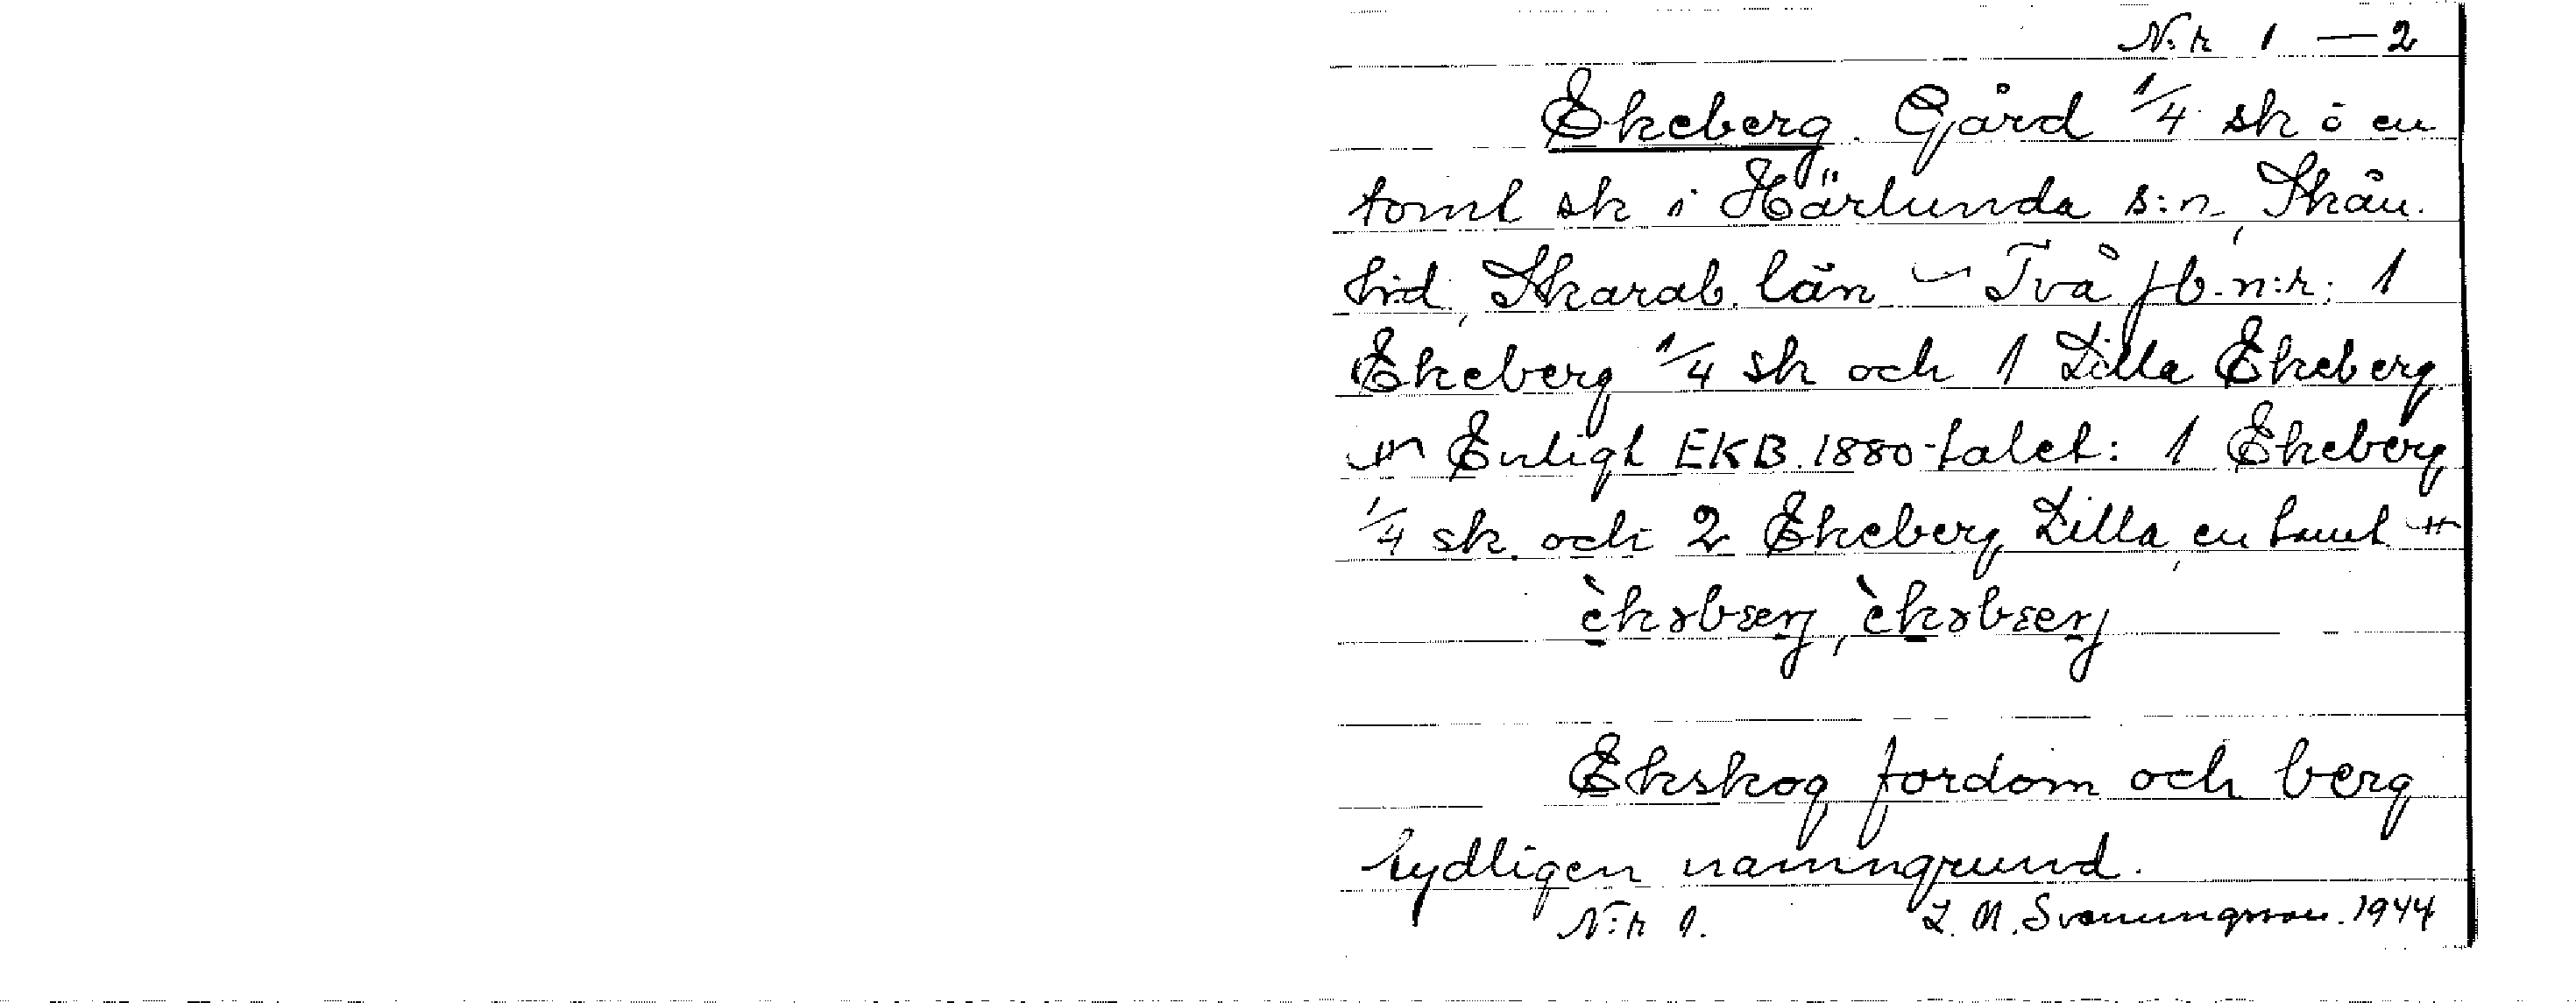 N:r 1 — 2
Ekeberg. Gård 1/4 sk o en
tomt sk i Härlunda s:n, Skån.
hd, Skarab. län — Två jb. n:r: 1
Ekeberg 1/4 sk och 1 Lilla Ekeberg
Enligt EKB. 1880-talet: 1 Ekeberg
1/4 sk. och 2 Ekeberg Lilla, en tomt
Ekskog fordom och berg
tydligen namngrund.
N:r 1. L. M. Svenungsson. 1944